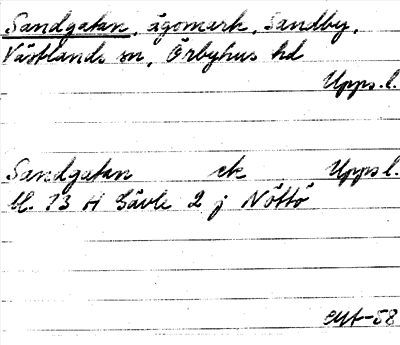 Sandgatan, ägomark, Sandby,
Västlands sn, Örbyhus hd
Upps.l.
Sandgatan ek Upps.l.
bl. 73 H Gävle 2 j Nöttö
-58